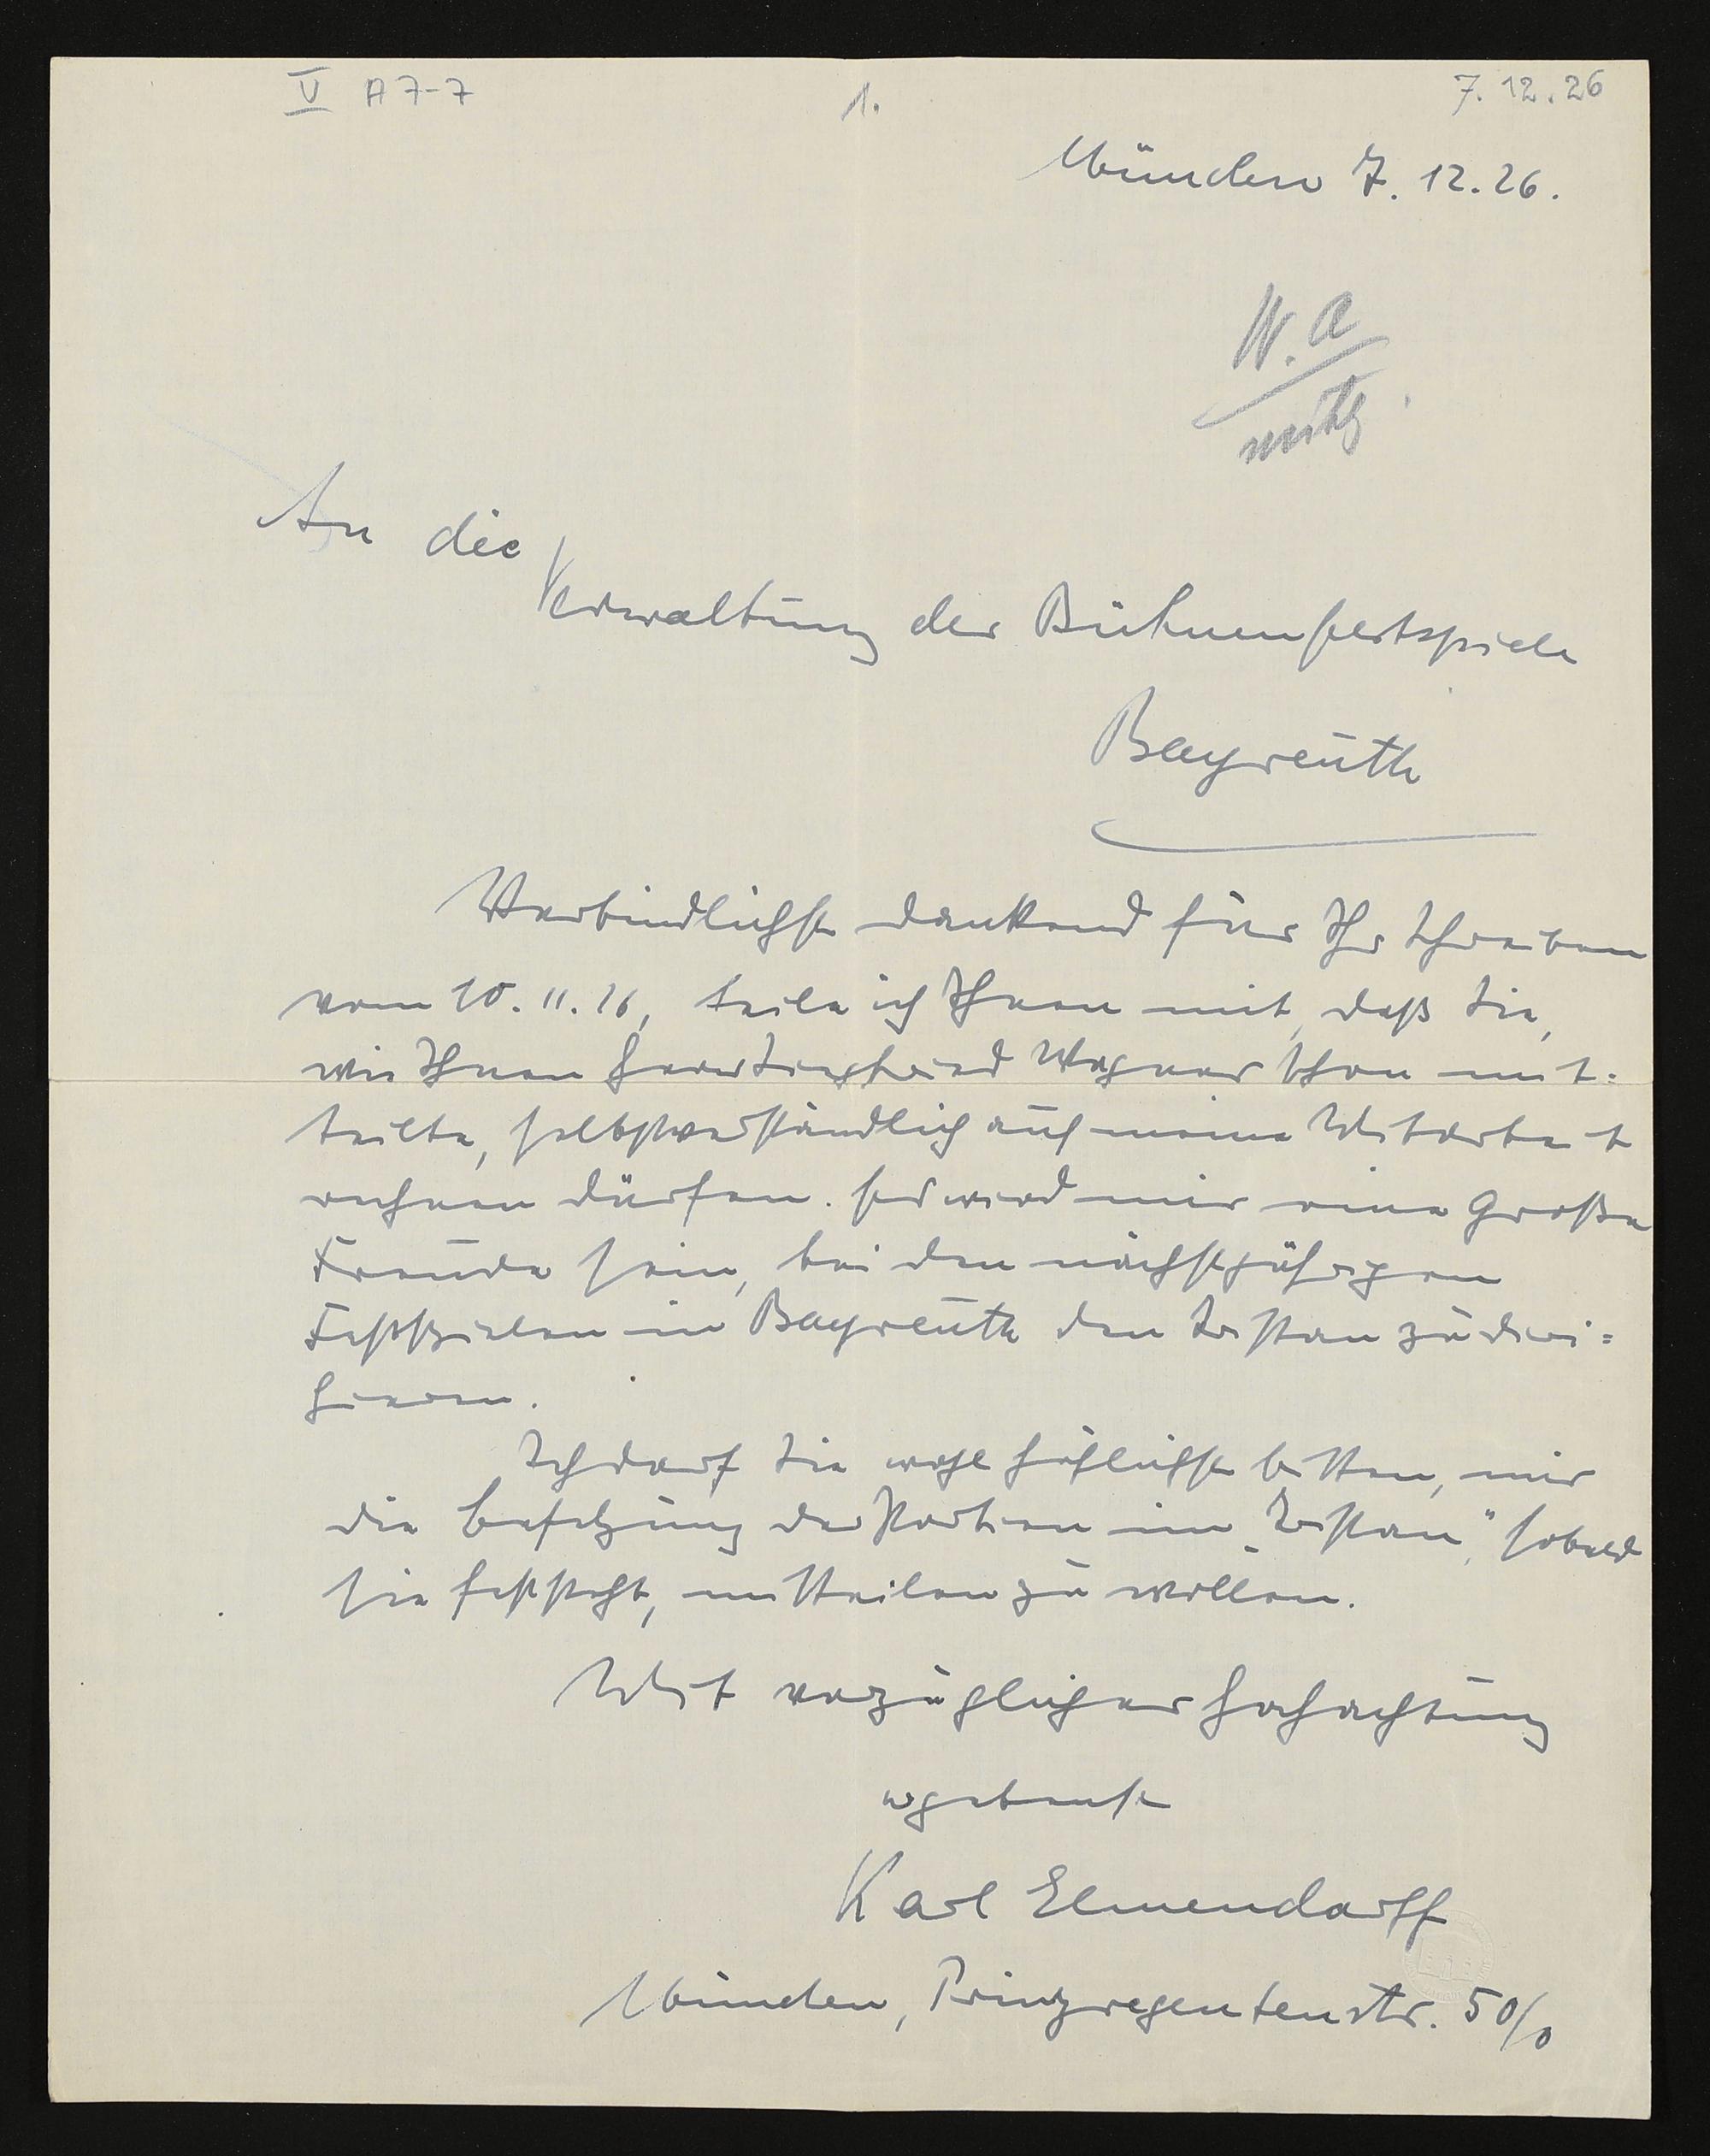 V A 7-7 1. 7. 12. 26
München 7. 12. 26.
W. A
An die
Verwaltung der Bühnenfestspiele
Bayreuth
Verbindlichst dankend für Ihr Schreiben
vom 10. 11. 26, teile ich Ihnen mit, daß Sie,
wie Ihnen Herr Siegfried Wagner schon mit=
teilte, selbstverständlich auf meine Mitarbeit
rechnen dürfen. Es wird mir eine große
Freude sein, bei den nächstjährigen
Festspielen in Bayreuth den Tristan zu diri=
gieren.
Ich darf Sie wohl höflichst bitten, mir
die Besetzung der Partien im „Tristan", sobald
sie feststeht, mitteilen zu wollen.
Mit vorzüglicher Hochachtung
ergebenst
Karl Elmendorff
München, Prinzregentenstr. 50/0